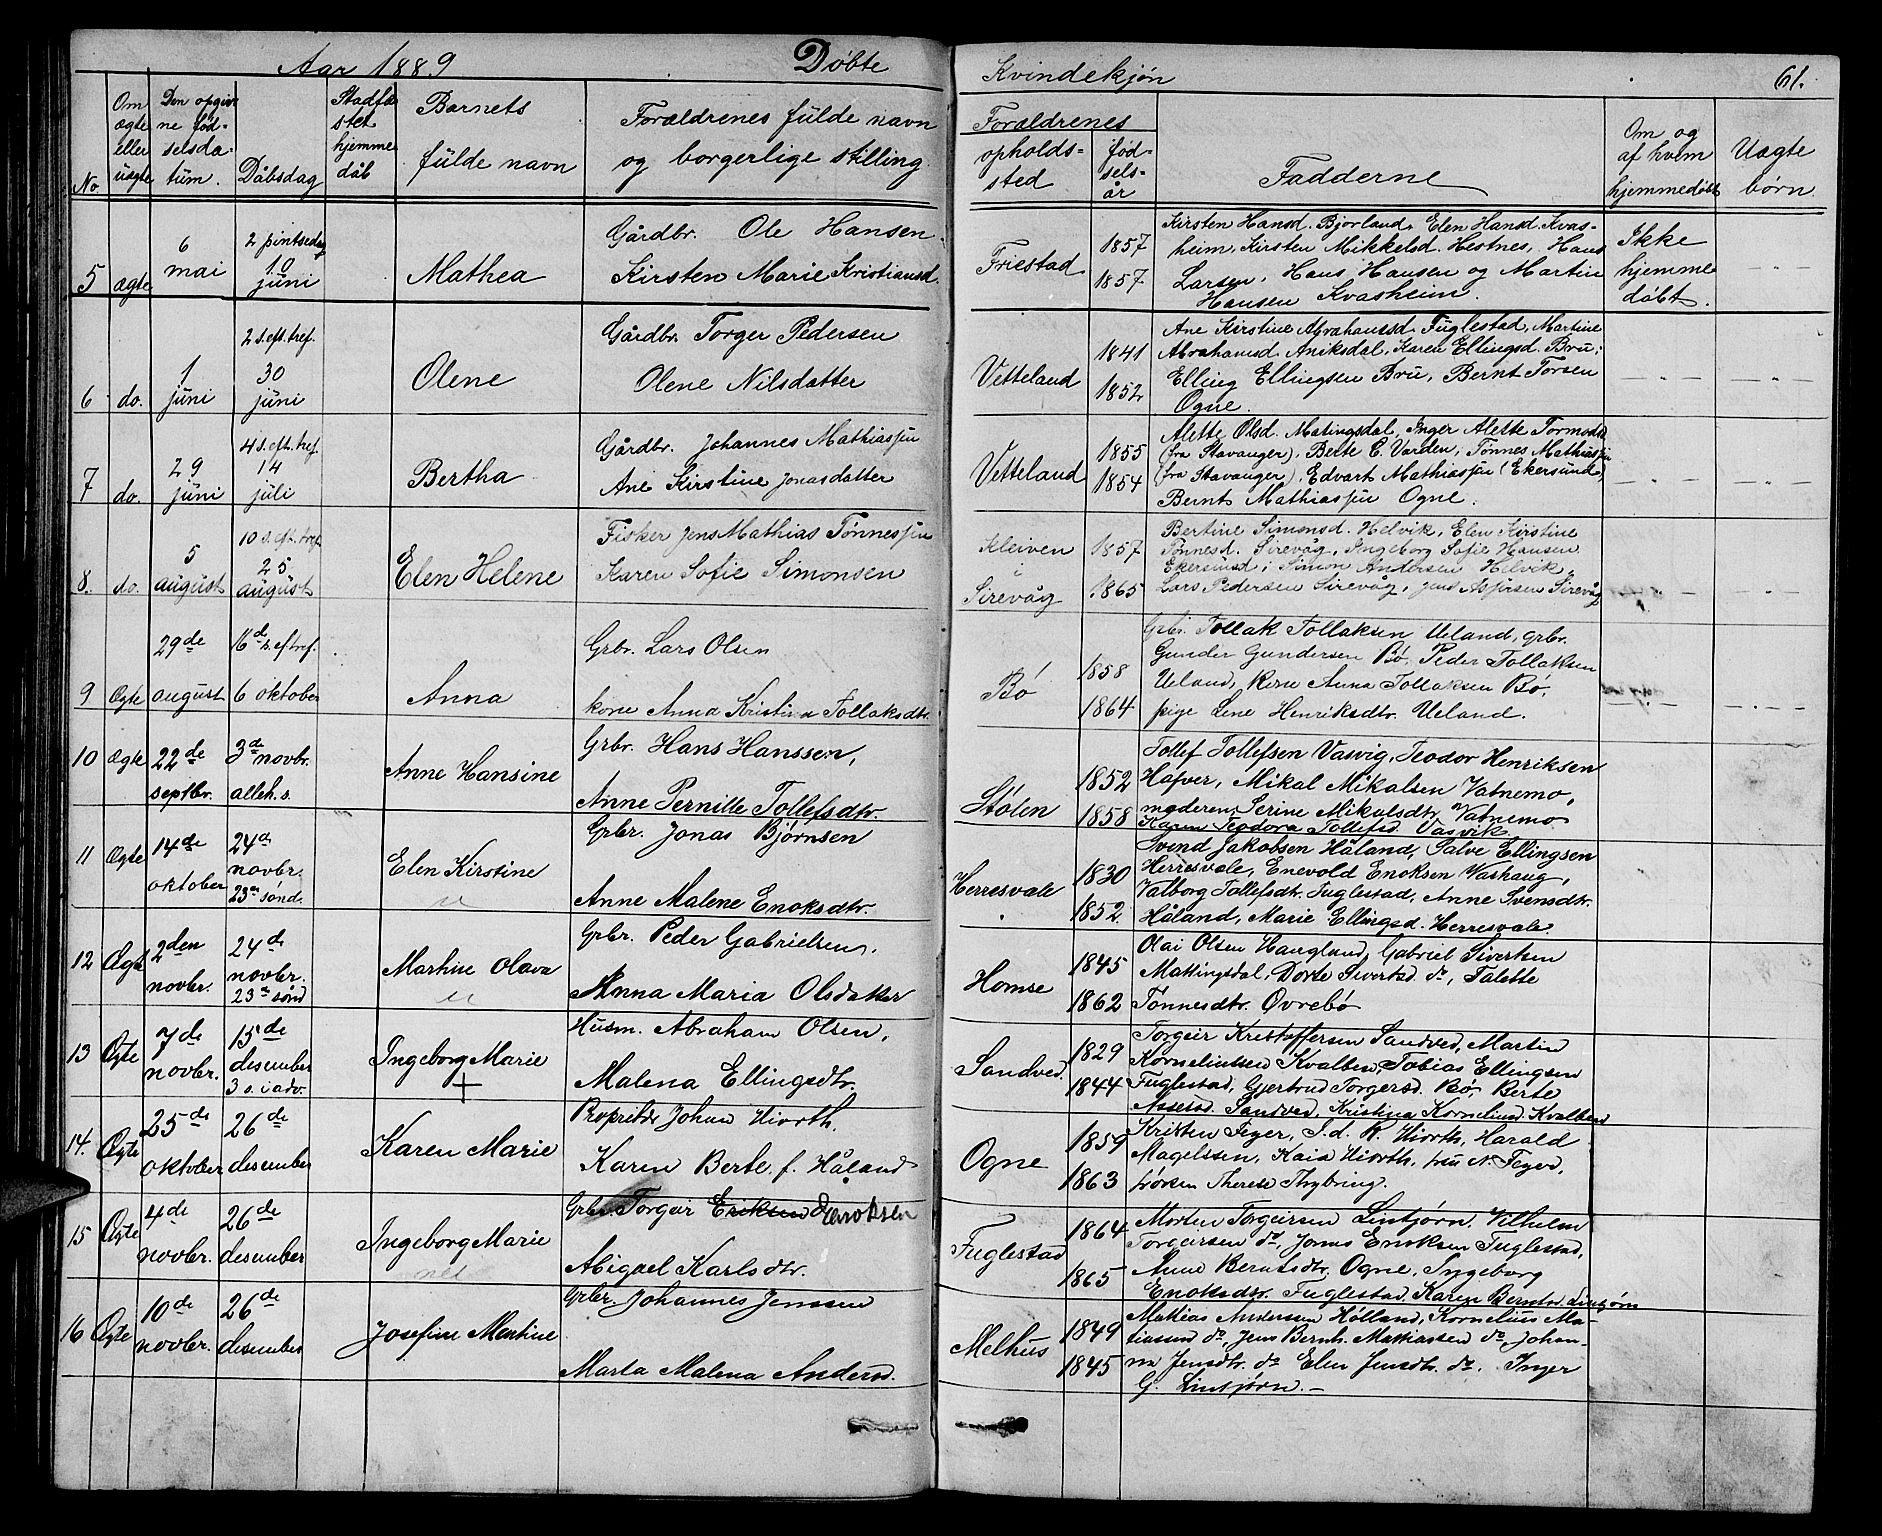 Aar 1889 Døbte
Kvindekjøn 61.
No
Om ægte eller uægte
Den opgivne fødselsdatum.
Dåbsdag
Stadfæstet hjemmedåb
Barnets fulde navn
Forældrenes fulde navn og borgerlige stilling.
Forældrenes opholdssted
fødselsår
Fadderne
Om og af hvem hjemmedøbt
Uægte børn.
5 ægte 6 mai 2 pintsedag 10 juni Mathea
Gårdbr. Ole Hansen
Kirsten Marie Kristiansd.
Friestad 1857 1857
Kirsten Hansd. Bjorland, Elen Hansd. Kvas-
heim, Kirsten Mikkelsd. Hestnes, Hans
Larsen, Hans Hansen og Martin
Hansen Kvasheim.
Ikke hjemmedøbt.
6 do. 1 juni 2 s. eft. tref. 30 juni Olene
Gårdbr. Torger Pedersen
Olene Nilsdatter
Vetteland 1841 1852
Ane Kirstine Abrahamsd. Fuglestad, Martine
Abrahamsd. Aniksdal, Karen Ellingsd. Bru,
Elling Ellingsen Bru, Bernt Torsen
Ogne.
7 do. 29 juni 4 s. eft. tref. 14 juli Bertha
Gårdbr. Johannes Mathiassen
Ane Kirstine Jonasdatter
Vetteland 1855 1854
Alette Olsd. Matingsdal, Inger Alette Tormodsd.
(fra Stavanger), Berte E. Varden, Tønnes Mathiassen
(fra Stavanger), Edvart Mathiassen (Ekersund),
Bernt Mathiassen Ogne.
8. do. 5 august 10 s. eft. tref. 25 august Elen Helene
Fisker Jens Mathias Tønnessen
Karen Sofie Simonsen
Kleiven i Sirevåg 1857 1865
Bertine Simonsd. Helvik, Elen Kirstine
Tønnesd. Sirevåg, Ingeborg Sofie Hansen
Ekersund; Simon Andersen Helvik,
Lars Pedersen Sirevåg, Jens Asjørsen Sirevåg
9 Ægte 29de august 16de s. ef. tref. 6 oktober Anna
Grbr. Lars Olsen
kone Anna Kristina Tollaksdtr.
Bø 1858 1864
Grbr. Tollak Tollaksen Ueland, grbr.
Gunder Gundersen Bø, Peder Tollaksen
Ueland, kone Anna Tollaksen Bø,
pige Lene Henriksdtr. Ueland.
10 Ægte 22de septbr. 3de novbr. alleh. s. Anne Hansine
Grbr. Hans Hanssen,
Anne Pernille Tollefsdtr.
Stølen 1852 1858
Tollef Tollefsen Vasvig, Teodor Henriksen
Hafver, Mikal Mikalsen Vatnemo,
moderen, Serine Mikalsdtr. Vatnemo
Karen Teodora Tollefsd. Vasvik
11 Ægte 14de oktober 24de novbr. 23de sønd. Elen Kirstine
Grbr. Jonas Bjørnsen
Anne Malene Enoksdtr.
Herresvale 1830 1852
Svend Jakobsen Håland, Salve Ellingsen
Herresvale, Enevold Enoksen Vashaug,
Valborg Tollefsdtr. Fuglestad, Anne Svensdtr.
Håland, Marie Ellingsd. Herresvale
12 Ægte 2den novbr. 24de novbr. 23de sønd Martine Olava
Grbr. Peder Gabrielsen,
Anna Maria Olsdatter
Homse 1845 1862
Olai Olsen Haugland, Gabriel Siversen
Mattingsdal, Dorte Sivertsd. do, Talette
Tønnesdtr. Øvrebø
13 Ægte 7de novbr. 15de desember 3 s. i adv. Ingeborg Marie +
Husm. Abraham Olsen,
Malena Ellingsdtr.
Sandved. 1829 1844
Torgeir Kristoffersen Sandved, Martin
Korneliussen Kvalben, Tobias Ellingsen
Fuglestad, Gjertrud Torgersd. Bø, Berte
Assersd. Sandved, Kristina Korneliusd. Kvalben
14. Ægte 25de oktober 26de desember Karen Marie
Proprietær Johan Hiorth,
Karen Berte, f. Håland
Ogne 1859 1863
Kristen Feyer, S. d. R. Hiorth, Harald
Magelssen, Kaia Hiorth, fru N. Feyer,
frøken Therese Thybring.
15 Ægte 4de novbr. 26de desember Ingeborg Marie
Grbr. Torgeir Eriksen Enoksen
Abigael Karlsdtr.
Fuglestad 1864 1865
Morten Torgeirsen Lintjørn, Vilhelm
Torgeirsen do, Jonas Enoksen Fuglestad,
Anne Berntsdtr. Ogne, Ingeborg
Enoksdtr. Fuglestad, Karen Berntsd. Lintjørn
16 Ægte 10de novbr. 26de desember Josefine Martine
Grbr. Johannes Jenssen
Marta Malena Andersd.
Melhus 1849 1845
Mathias Andersen Hølland, Kornelius Ma-
tiassen do, Jens Bernh. Mattiassen do, Johan-
na Jensdtr. do, Elen Jensdtr. do, Inger
G. Lintjørn. –